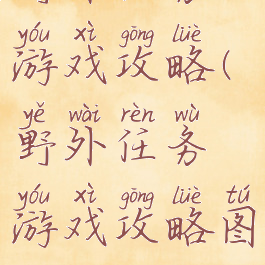 yóu xì gōng lüè
游戏攻略(
yě wài rèn wù
野外任务
yóu xì gōng lüè tú
游戏攻略图